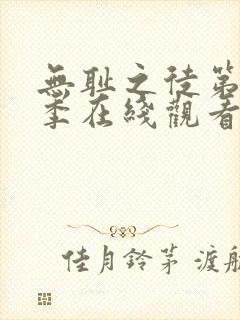 無耻之徒第
季在綫觀看
佳月鈴茅 渡航